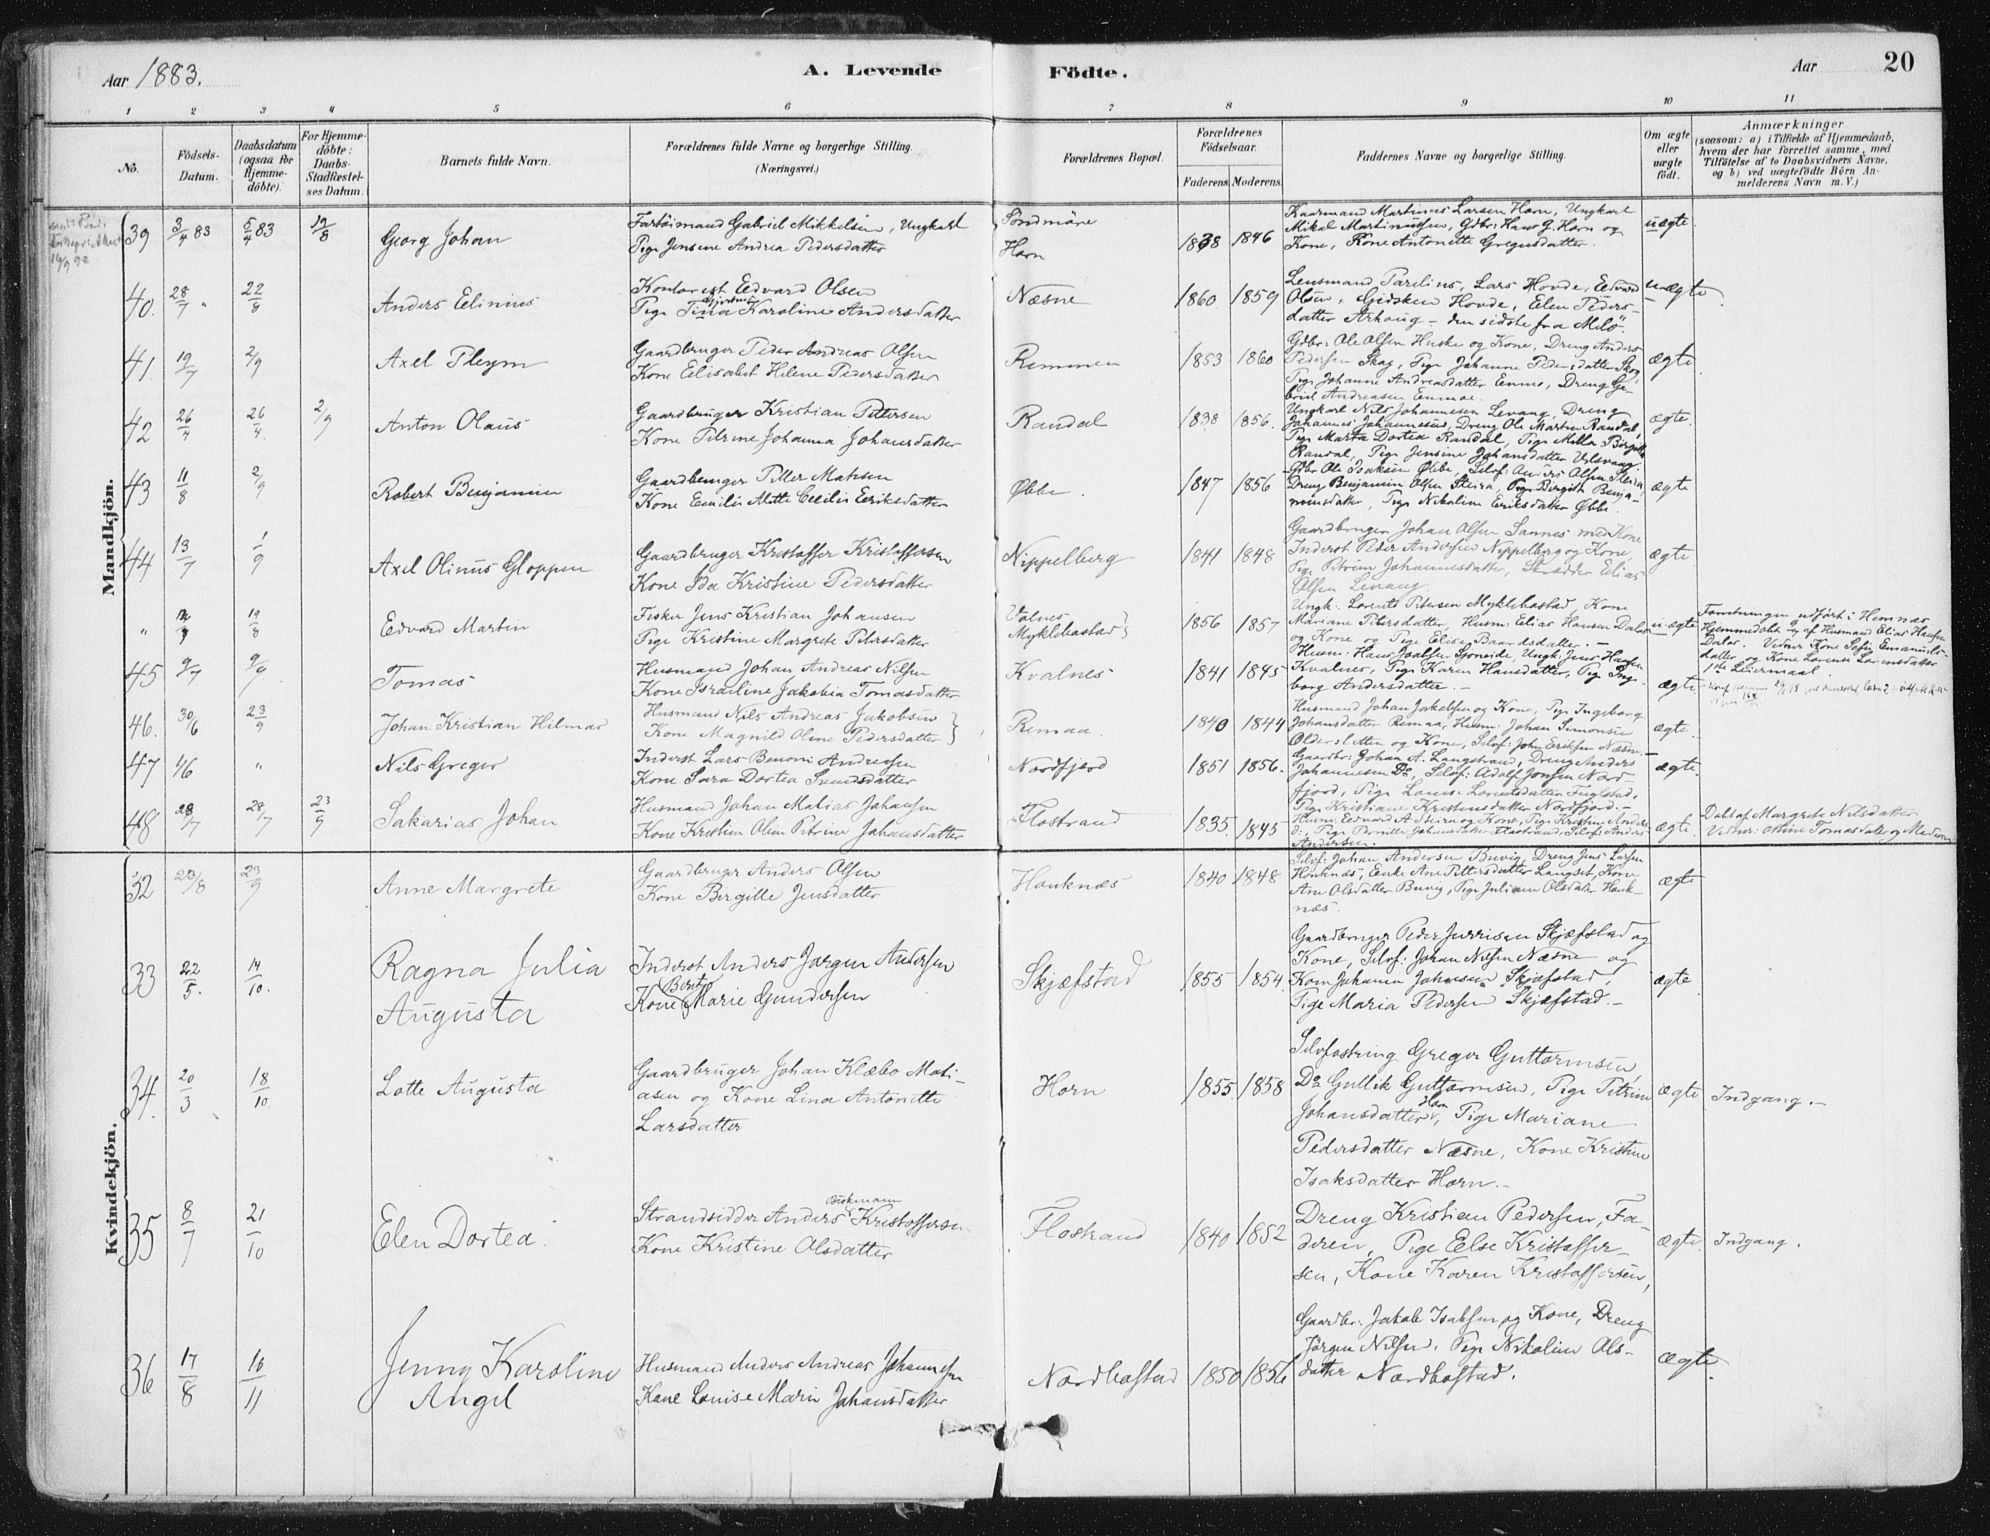 Aar 1883.
A. Levende
Födte.
Aar
20
1 2 3 4 5 6 7 8 9 10 11
No.
Födsels-Datum.
Daabsdatum (ogsaa for Hjemme-döbte).
For Hjemme-döbte: Daabs-Stadfæstel-ses Datum.
Barnets fulde Navn.
Forældrenes fulde Navne og borgerlige Stilling. (Næringsvei.)
Forældrenes Bopæl.
Forældrenes Födselsaar.
Faderens. Moderens.
Faddernes Navne og borgerlige Stilling.
Om ægte eller uægte födt.
Anmærkninger
(saasom: a) i Tilfælde af Hjemmedaab, hvem der har forrettet samme, med Tilföielse af to Daabsvidners Navne, og b) ved uægtefödte Börn Anmelderens Navn m. V.)
Mandkjön.
39 3/4 83 5/4 83 19/8 Georg Johan
Fartöimand Gabriel Mikkelsen, Ungkarl
Pige Jensine Andrea Pedersdatter
Söndmöre
Horn
1838 1846
Kaarmand Martinus Larsen Horn, Ungkarl
Mikal Martinussen, Gdbr: Hans G. Horn og
Kone, Kone Antonette Gregusdatter.
uægte
40. 28/7 " 22/8 Anders Elinius
Kontorist Edvard Olsen
Pige Tina Hjertine Karoline Andersdatter
Næsne 1860 1859
Lensmand Parelius, Lars Hovde, Edvard
Olsen, Gidsken Hovde, Elen Peders-
datter Arhaug - den sidste fra Melö.
uægte
41. 19/7 2/9 Axel Pleym
Gaardbruger Peder Andreas Olsen
Kone Elisabet Helene Pedersdatter
Remmen 1853 1860
Gdbr: Ole Olsen Huske og Kone, Dreng Anders
Pedersen Skog, Pige Johanne Pedersdatter Skog,
Pige Johanne Andreasdatter Enmo, Dreng Ga-
briel Andreasen Enmoe.
ægte
42 26/4 26/4 2/9 Anton Olaus
Gaardbruger Kristian Pettersen
Kone Petrine Johanna Johansdatter
Randal 1838 1856.
Ungkarl Nils Johannesen Levang, Dreng
Johannes Johannesen, Dreng Ole Martin Randal,
Pige Marta Dortea Randal, Pige Milla Birgitte
Randal, Pige Jensine Johansdatter
ægte.
43 11/8 2/9 Robert Benjamin
Gaardbruger Petter Matisen
Kone Emilie Mette Cecilie Eriksdatter
Öbbe. 1847 1856
Gdbr Ole Isaksen Öbbe, Selof: Anders Olsen Steira,
Dreng Benjamin Olsen Steira, Pige Birgith Benja-
minsdatter, Pige Nikoline Eriksdatter Öbbe.
ægte
44 13/7 1/9 Axel Olinus Gloppen
Gaardbruger Kristoffer Kristoffersen
Kone Ida Kristine Pedersdatter
Nippelberg 1841 1848
Gaardbruger Johan Olsen Sannes med Kone
Inderst Peder Andersen Nippelberg og Kone,
Pige Petrine Johannesdatter, Skrædder Elias
Olsen Levang
ægte
" 19/8 Edvard Martin
Fisker Jens Kristian Johansen
Pige Kristine Margrete Petersdatter
Valnes
Myklebostad
1856 1857
Ungk: Lorents Petersen Myklebostad, Kone
Mariane Petersdatter, Husm: Elias Hansen Dalos
og Kone og Pige Elise Baardsdatter. -
uægte
Forretningen udfört i Hemnæs
Hjemmedöbt af Husmand Elias Hansen
Dalos. Vidner Kone Sofie Emanuels-
datter og Kone Lorense Lorensdatter
1ste Leiermaal.
45 9/7 9/9 Tomas
Husmand Johan Andreas Nilsen
Kone Israeline Jakobia Tomasdatter
Kvalnes 1841 1845
Husm: Hans Joelsen Sjoneide, Ungk: Jens Hansen
Kvalnes, Pige Karen Hansdatter, Pige Inge-
borg Andersdatter. -
ægte
46. 30/6 23/9 Johan Kristian Hilmar
Husmand Nils Andreas Jakobsen
Kone Magnild Oline Pedersdatter
Remaa. 1840 1844
Husmand Johan Jakobsen og Kone, Pige Ingeborg
Johansdatter Remaa, Husm: Johan Simonsen
Oldersletten og Kone, Selof: John Eriksen Næsne. -
ægte.
47 4/6 " Nils Greger
Inderst Lars Benoni Andreasen
Kone Sara Dortea Svendsdatter
Nordfjord 1851 1856.
Gaardbr: Johan A. Langstrand, Dreng Anders
Johannesen Do, Selof: Adolf Jonsen Nord-
fjord, Pige Louise Lorentsdatter Fuglstad,
Pige Kristiane Kristensdatter Nordfjord. -
ægte.
48 28/7 28/7 23/9 Sakarias Johan
Husmand Johan Matias Johansen
Kone Kristine Olene Petrine Johansdatter
Flostrand 1835. 1845
Husm: Edvard A. Steira og Kone, Pige Kristine Anders-
d:, Pige Pernille Johansdatter Flostrand, Selof: Anders
Andersen.
ægte.
Döbt af Margrete Nilsdatter
Vidner: Oline Tomasdatter og Moderen
Kvindekjön.
32 20/8 23/9 Anne Margrete
Gaardbruger Anders Olsen
Kone Birgitte Jensdatter
Hauknæs 1840 1848
Selof: Johan Andersen Buvig, Dreng Jens Larsen
Hauknæs, Enke Ane Pettersdatter Langset, Kone
Ane Olsdatter Buvig, Pige Juliane Olsdatter Hauk-
næs.
ægte
33 22/5. 14/10. Ragna Julia
Augusta
Inderst Anders Jørgen Andersen
Kone Berit Marie Gundersen
Skjæfstad 1855 1854.
Gaardbruger Peder Jurrisen Skjæfstad og
Kone, Selof: Johan Nilsen Næsne og
Kone Johanna Johansen Skjæfstad,
Pige Maria Pedersen Skjæfstad. -
ægte
34. 20/3 18/10. Lotte Augusta
Gaardbruger Johan Klæbo Mati-
asen og Kone Lina Antonette
Larsdatter
Horn 1855. 1858
Selofostring Greger Guttormsen,
Do Gullik Guttormsen, Pige Petrine
Johansdatter Horn, Pige Mariane
Pedersdatter Næsne, Kone Kristine
Isaksdatter Horn. -
ægte Indgang. -
35 8/7 21/10 Elen Dortea.
Strandsidder Anders Brekmann Kristoffersen
Kone Kristine Olsdatter
Flostrand 1840 1852
Dreng Kristian Pedersen, Fa-
deren, Pige Else Kristoffer-
sen, Kone Karen Kristoffersen,
ægte. Indgang.
36 17/8 16/11 Jenny Karoline
Angel
Husmand Anders Andreas Johannesen
Kone Louise Marie Johansdatter
Nordbostad 1850 1856
Gaardbr: Jakob Isaksen og Kone, Dreng
Jörgen Nilsen. Pige Nikoline Ols-
datter Nordbostad.
ægte.